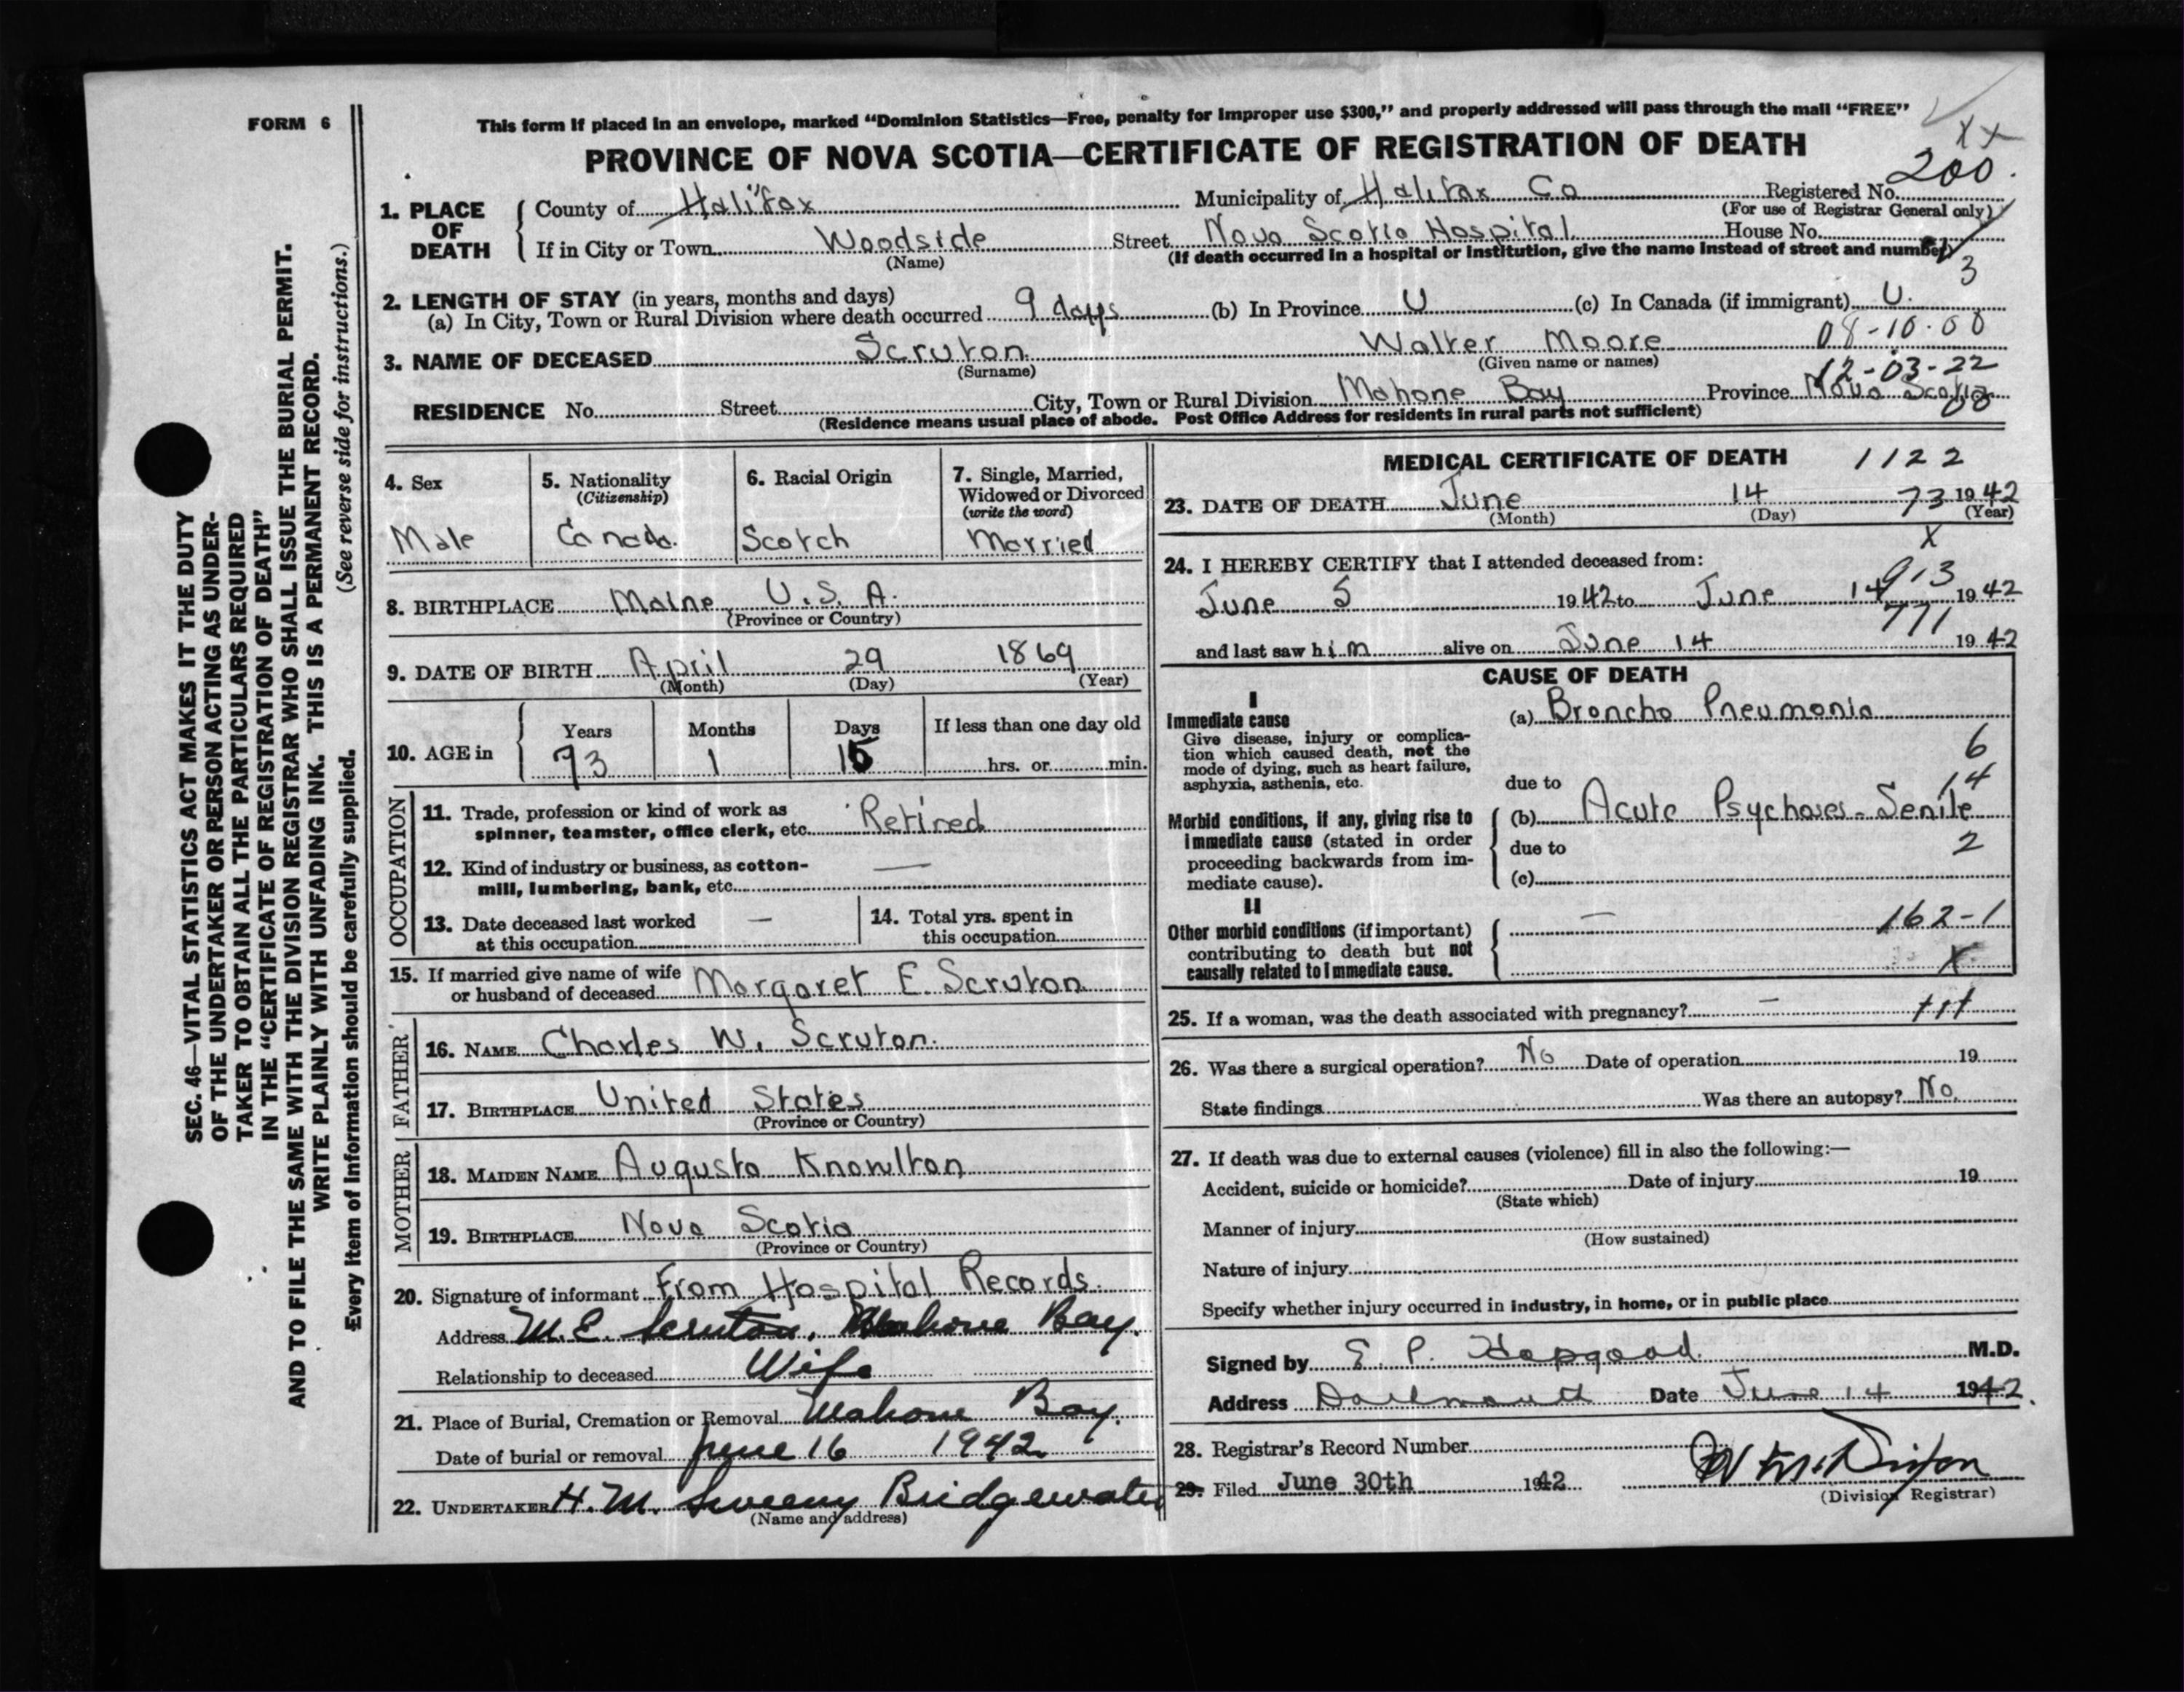 FORM 6
This form if placed in an envelope, marked "Dominion Statistics—Free, penalty for improper use $300," and properly addressed will pass through the mail "FREE"
PROVINCE OF NOVA SCOTIA—CERTIFICATE OF REGISTRATION OF DEATH
XX
1. PLACE OF DEATH
County of Halifax Municipality of Halifax Co Registered No. 200.
(For use of Registrar General only)
If in City or Town Woodside Street Nova Scotia Hospital House No.
(Name) (If death occurred in a hospital or institution, give the name instead of street and number)
3
2. LENGTH OF STAY (in years, months and days)
(a) In City, Town or Rural Division where death occurred 9 days (b) In Province U (c) In Canada (if immigrant) U.
08-10-00
3. NAME OF DECEASED Scruton Walter Moore
(Surname) (Given name or names)
12-03-22
RESIDENCE No. Street City, Town or Rural Division Mahone Bay Province Nova Scotia
00
(Residence means usual place of abode. Post Office Address for residents in rural parts not sufficient)
4. Sex
Male
5. Nationality
(Citizenship)
Canada.
6. Racial Origin
Scotch
7. Single, Married,
Widowed or Divorced
(write the word)
Married
8. BIRTHPLACE Maine, U.S.A.
(Province or Country)
9. DATE OF BIRTH April 29 1869
(Month) (Day) (Year)
10. AGE in Years Months Days If less than one day old
73 1 15 hrs. or min.
OCCUPATION
11. Trade, profession or kind of work as
spinner, teamster, office clerk, etc. Retired
12. Kind of industry or business, as cotton-
mill, lumbering, bank, etc. —
13. Date deceased last worked
at this occupation —
14. Total yrs. spent in
this occupation
15. If married give name of wife
or husband of deceased Margaret E. Scruton
FATHER
16. NAME Charles W. Scruton.
17. BIRTHPLACE United States
(Province or Country)
MOTHER
18. MAIDEN NAME Augusta Knowlton
19. BIRTHPLACE Nova Scotia
(Province or Country)
20. Signature of informant From Hospital Records.
Address M. E. Scruton, Mahone Bay.
Relationship to deceased Wife
21. Place of Burial, Cremation or Removal Mahone Bay.
Date of burial or removal June 16 1942
22. UNDERTAKER H. M. Sweeny Bridgewater
(Name and address)
MEDICAL CERTIFICATE OF DEATH 1122
23. DATE OF DEATH June 14 73 1942
(Month) (Day) (Year)
X
24. I HEREBY CERTIFY that I attended deceased from:
913
June 5 1942 to June 14 1942
771
and last saw him alive on June 14 1942
CAUSE OF DEATH
I
Immediate cause
Give disease, injury or complica-
tion which caused death, not the
mode of dying, such as heart failure,
asphyxia, asthenia, etc.
(a) Broncho Pneumonia
6
due to
14
Morbid conditions, if any, giving rise to
immediate cause (stated in order
proceeding backwards from im-
mediate cause).
(b) Acute Psychoses - Senile
due to 2
(c)
II
Other morbid conditions (if important)
contributing to death but not
causally related to immediate cause.
— 162-1
X
25. If a woman, was the death associated with pregnancy? —
26. Was there a surgical operation? No Date of operation 19
State findings Was there an autopsy? No.
27. If death was due to external causes (violence) fill in also the following:—
Accident, suicide or homicide? Date of injury 19
(State which)
Manner of injury
(How sustained)
Nature of injury
Specify whether injury occurred in industry, in home, or in public place
Signed by E. P. Hopgood M.D.
Address Dartmouth Date June 14 1942.
28. Registrar's Record Number
29. Filed June 30th 1942
(Division Registrar)
SEC. 46—VITAL STATISTICS ACT MAKES IT THE DUTY
OF THE UNDERTAKER OR PERSON ACTING AS UNDER-
TAKER TO OBTAIN ALL THE PARTICULARS REQUIRED
IN THE "CERTIFICATE OF REGISTRATION OF DEATH"
AND TO FILE THE SAME WITH THE DIVISION REGISTRAR WHO SHALL ISSUE THE BURIAL PERMIT.
WRITE PLAINLY WITH UNFADING INK. THIS IS A PERMANENT RECORD.
Every item of information should be carefully supplied. (See reverse side for instructions.)